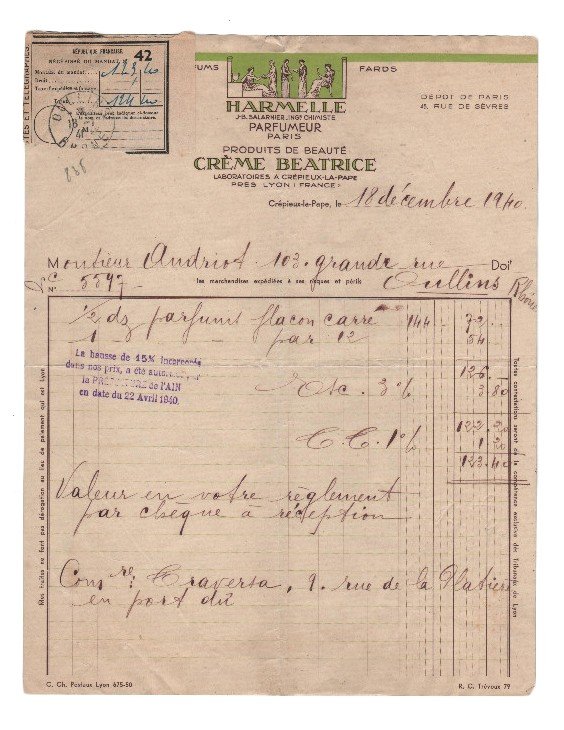 RÉPUBLIQUE FRANÇAISE
RÉCÉPISSÉ DU MANDAT
42
Montant du mandat 123,40
Droit
FUMS
FARDS
HARMELLE
J-B. BALARHIER, ING.r CHIMISTE
PARFUMEUR
PARIS
DÉPÔT DE PARIS
45, RUE DE SÈVRES
PRODUITS DE BEAUTÉ
CRÈME BEATRICE
LABORATOIRES A CRÉPIEUX-LA-PAPE
PRÈS LYON (FRANCE)
Crépieux-la-Pape, le 18 décembre 1940
Monsieur Andriot 103. grande rue Doit
N° 5547
les marchandises expédiées à ses risques et périls
Oullins Rhône
1/2 dz parfums flacon carré 144 72
1 par 12 54
126
La hausse de 15% incorporée
dans nos prix, a été
la PRÉFECTURE de l'AIN
en date du 22 Avril 1940.
Esc. 3% 3 80
122.20
T.C. 1% 1 20
123.40
Valeur en votre règlement
par chèque à réception
Cons re: Traversa, 9. rue de la Platière
en port dû
Nos traites ne font pas dérogation au lieu de paiement qui est Lyon
Toutes contestations seront de la compétence exclusive des Tribunaux de Lyon
C. Ch. Postaux Lyon 675-50
R. C. Trévoux 79